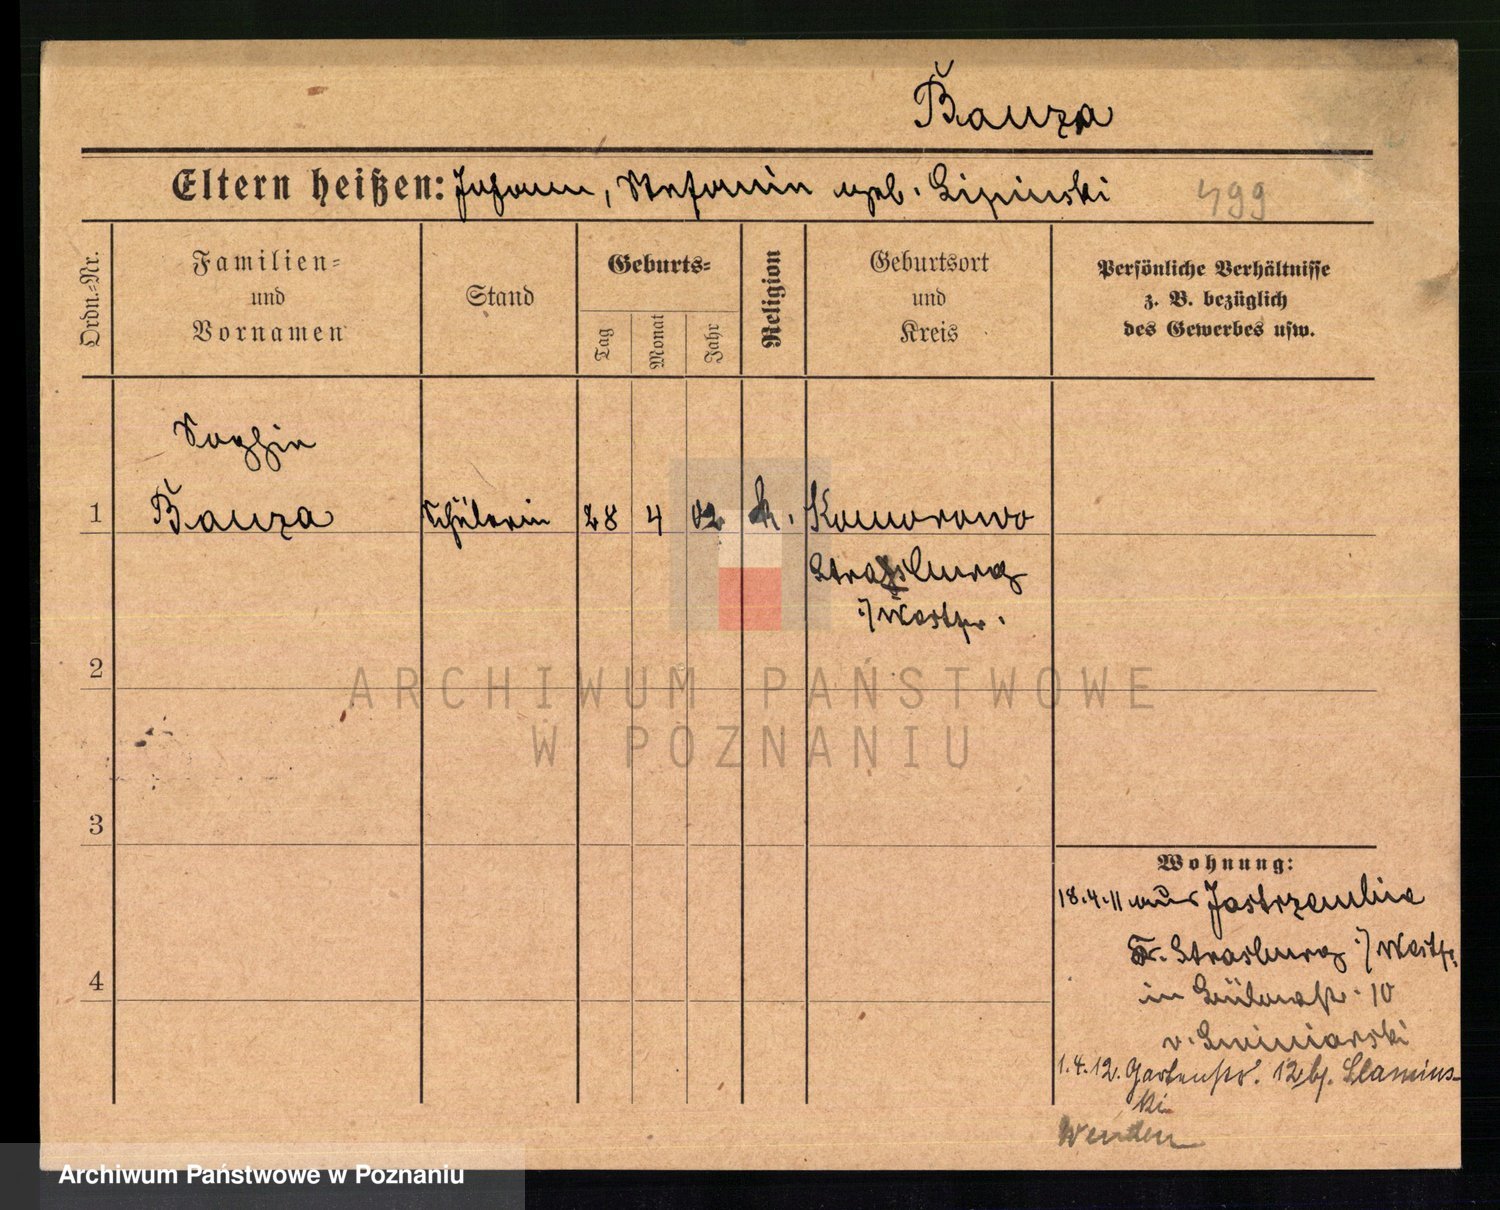 Bauza
Eltern heißen: Johann, Stefanie geb. Lipinski
499
Ordn.-Nr.
Familien-
und
Vornamen
Stand
Geburts-
Tag
Monat
Jahr
Religion
Geburtsort
und
Kreis
Persönliche Verhältnisse
z. B. bezüglich
des Gewerbes usw.
Sophie
1 Bauza Schülerin 28 4 02 k. Komorowo
Strasburg
i/Westpr.
2
ARCHIWUM PAŃSTWOWE
W POZNANIU
3
Wohnung:
18.4.11 aus Jastrzembie
Kr. Strasburg i/Westpr.
4
in 10
v.
1.4.12. Gartenstr. 12 bj. Slamins-
ki
Wenden
Archiwum Państwowe w Poznaniu